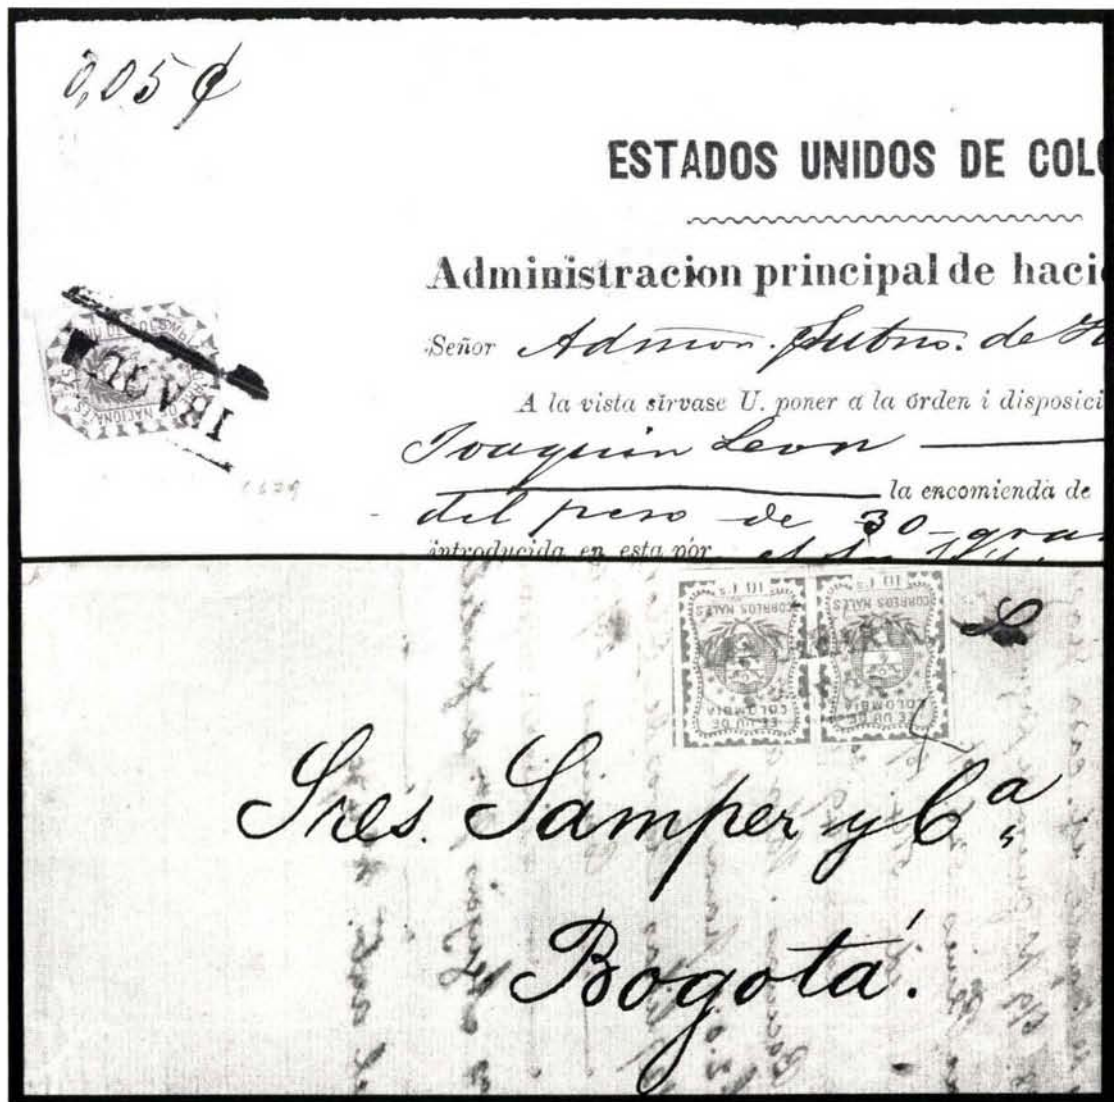 0,05 ¢
ESTADOS UNIDOS DE COLO
Administracion principal de haci
Señor Admon. Subno. de H
A la vista sírvase U. poner a la órden i disposici
Joaquin Leon
la encomienda de
del peso de 30 gra
introducida en esta por
10 Cs 10 Cs
CORREOS NALES CORREOS NALES
COLOMBIA COLOMBIA
EE. UU. DE EE. UU. DE
Sres. Samper y Ca.
Bogotá.